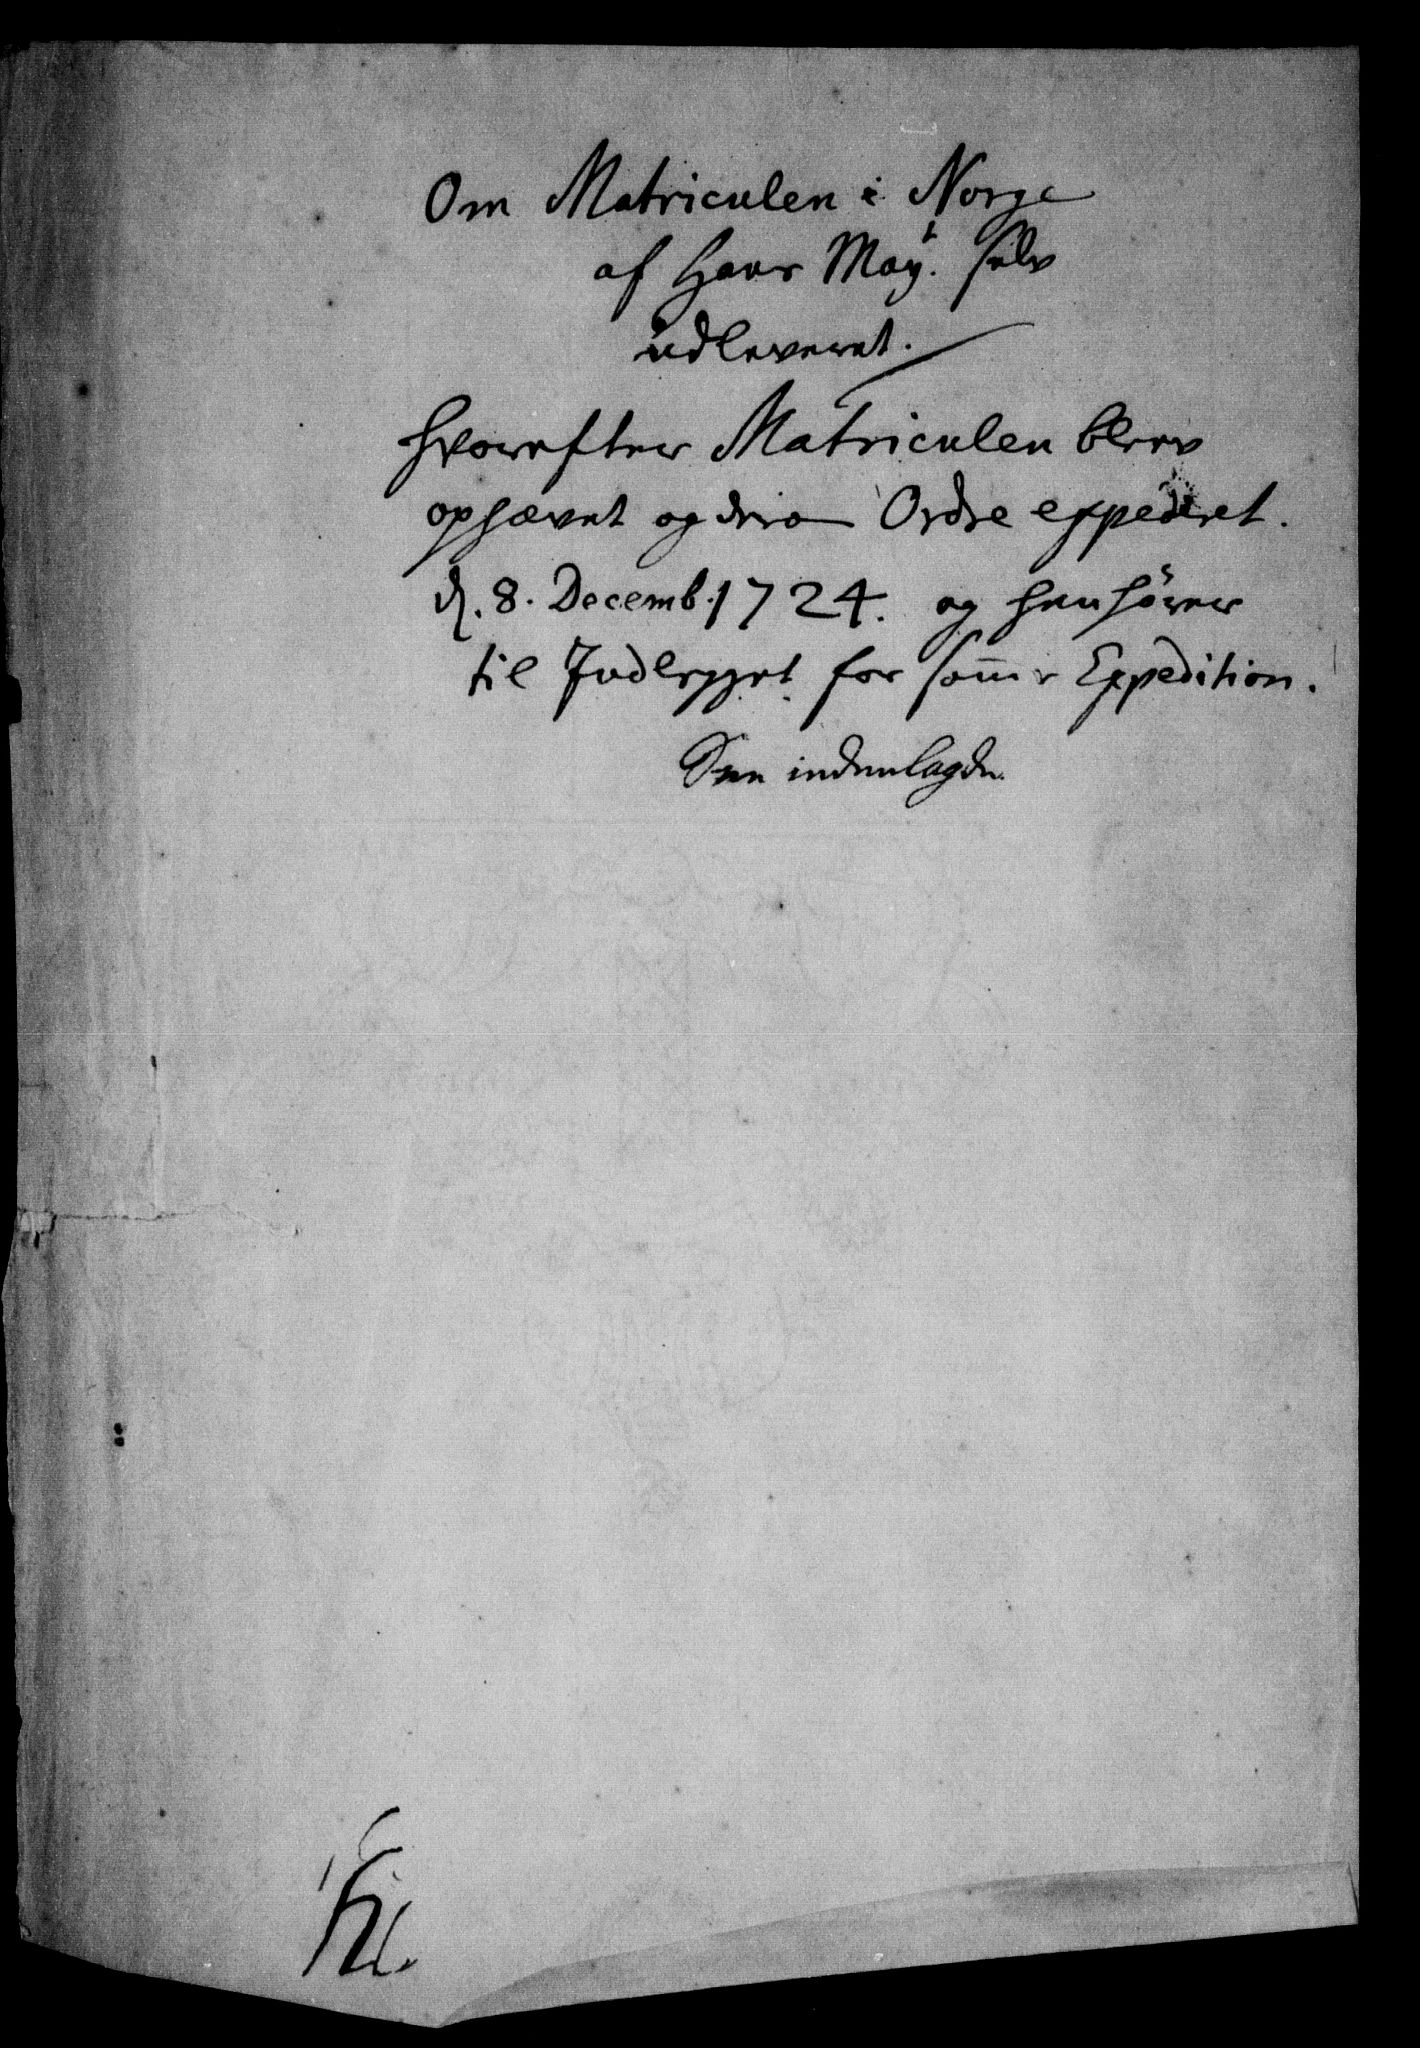 Om Matriculen i Norge
af Hans Mayt. selv
udleveret.
hvorefter Matriculen blev
ophævet og derom Ordre expederet.
d. 8. Decemb. 1724. og henhører
til Indlegget for samme Expedition.
See indenlagde.